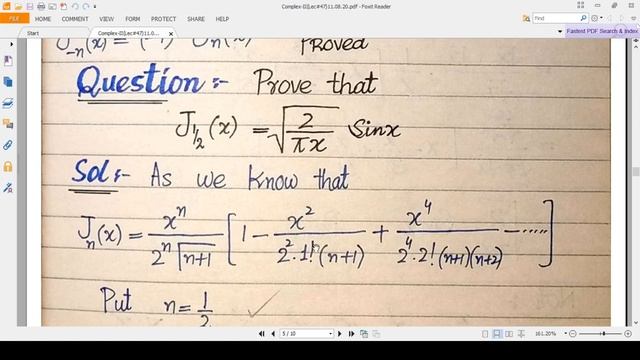 Complex-II(Lec#47)11.08.20.pdf - Foxit Reader
FILE HOME COMMENT VIEW FORM PROTECT SHARE HELP
Find
Start Complex-II(Lec#47)11.0...
Fastest PDF Search & Index
Proved
Question:- Prove that
J_{1/2}(x) = √(2/πx) Sinx
Sol:- As we know that
J_n(x) = x^n / 2^n Γ(n+1) [1 - x^2 / 2^2·1!(n+1) + x^4 / 2^4·2!(n+1)(n+2) - .....]
Put n = 1/2
5 / 10
161.20%